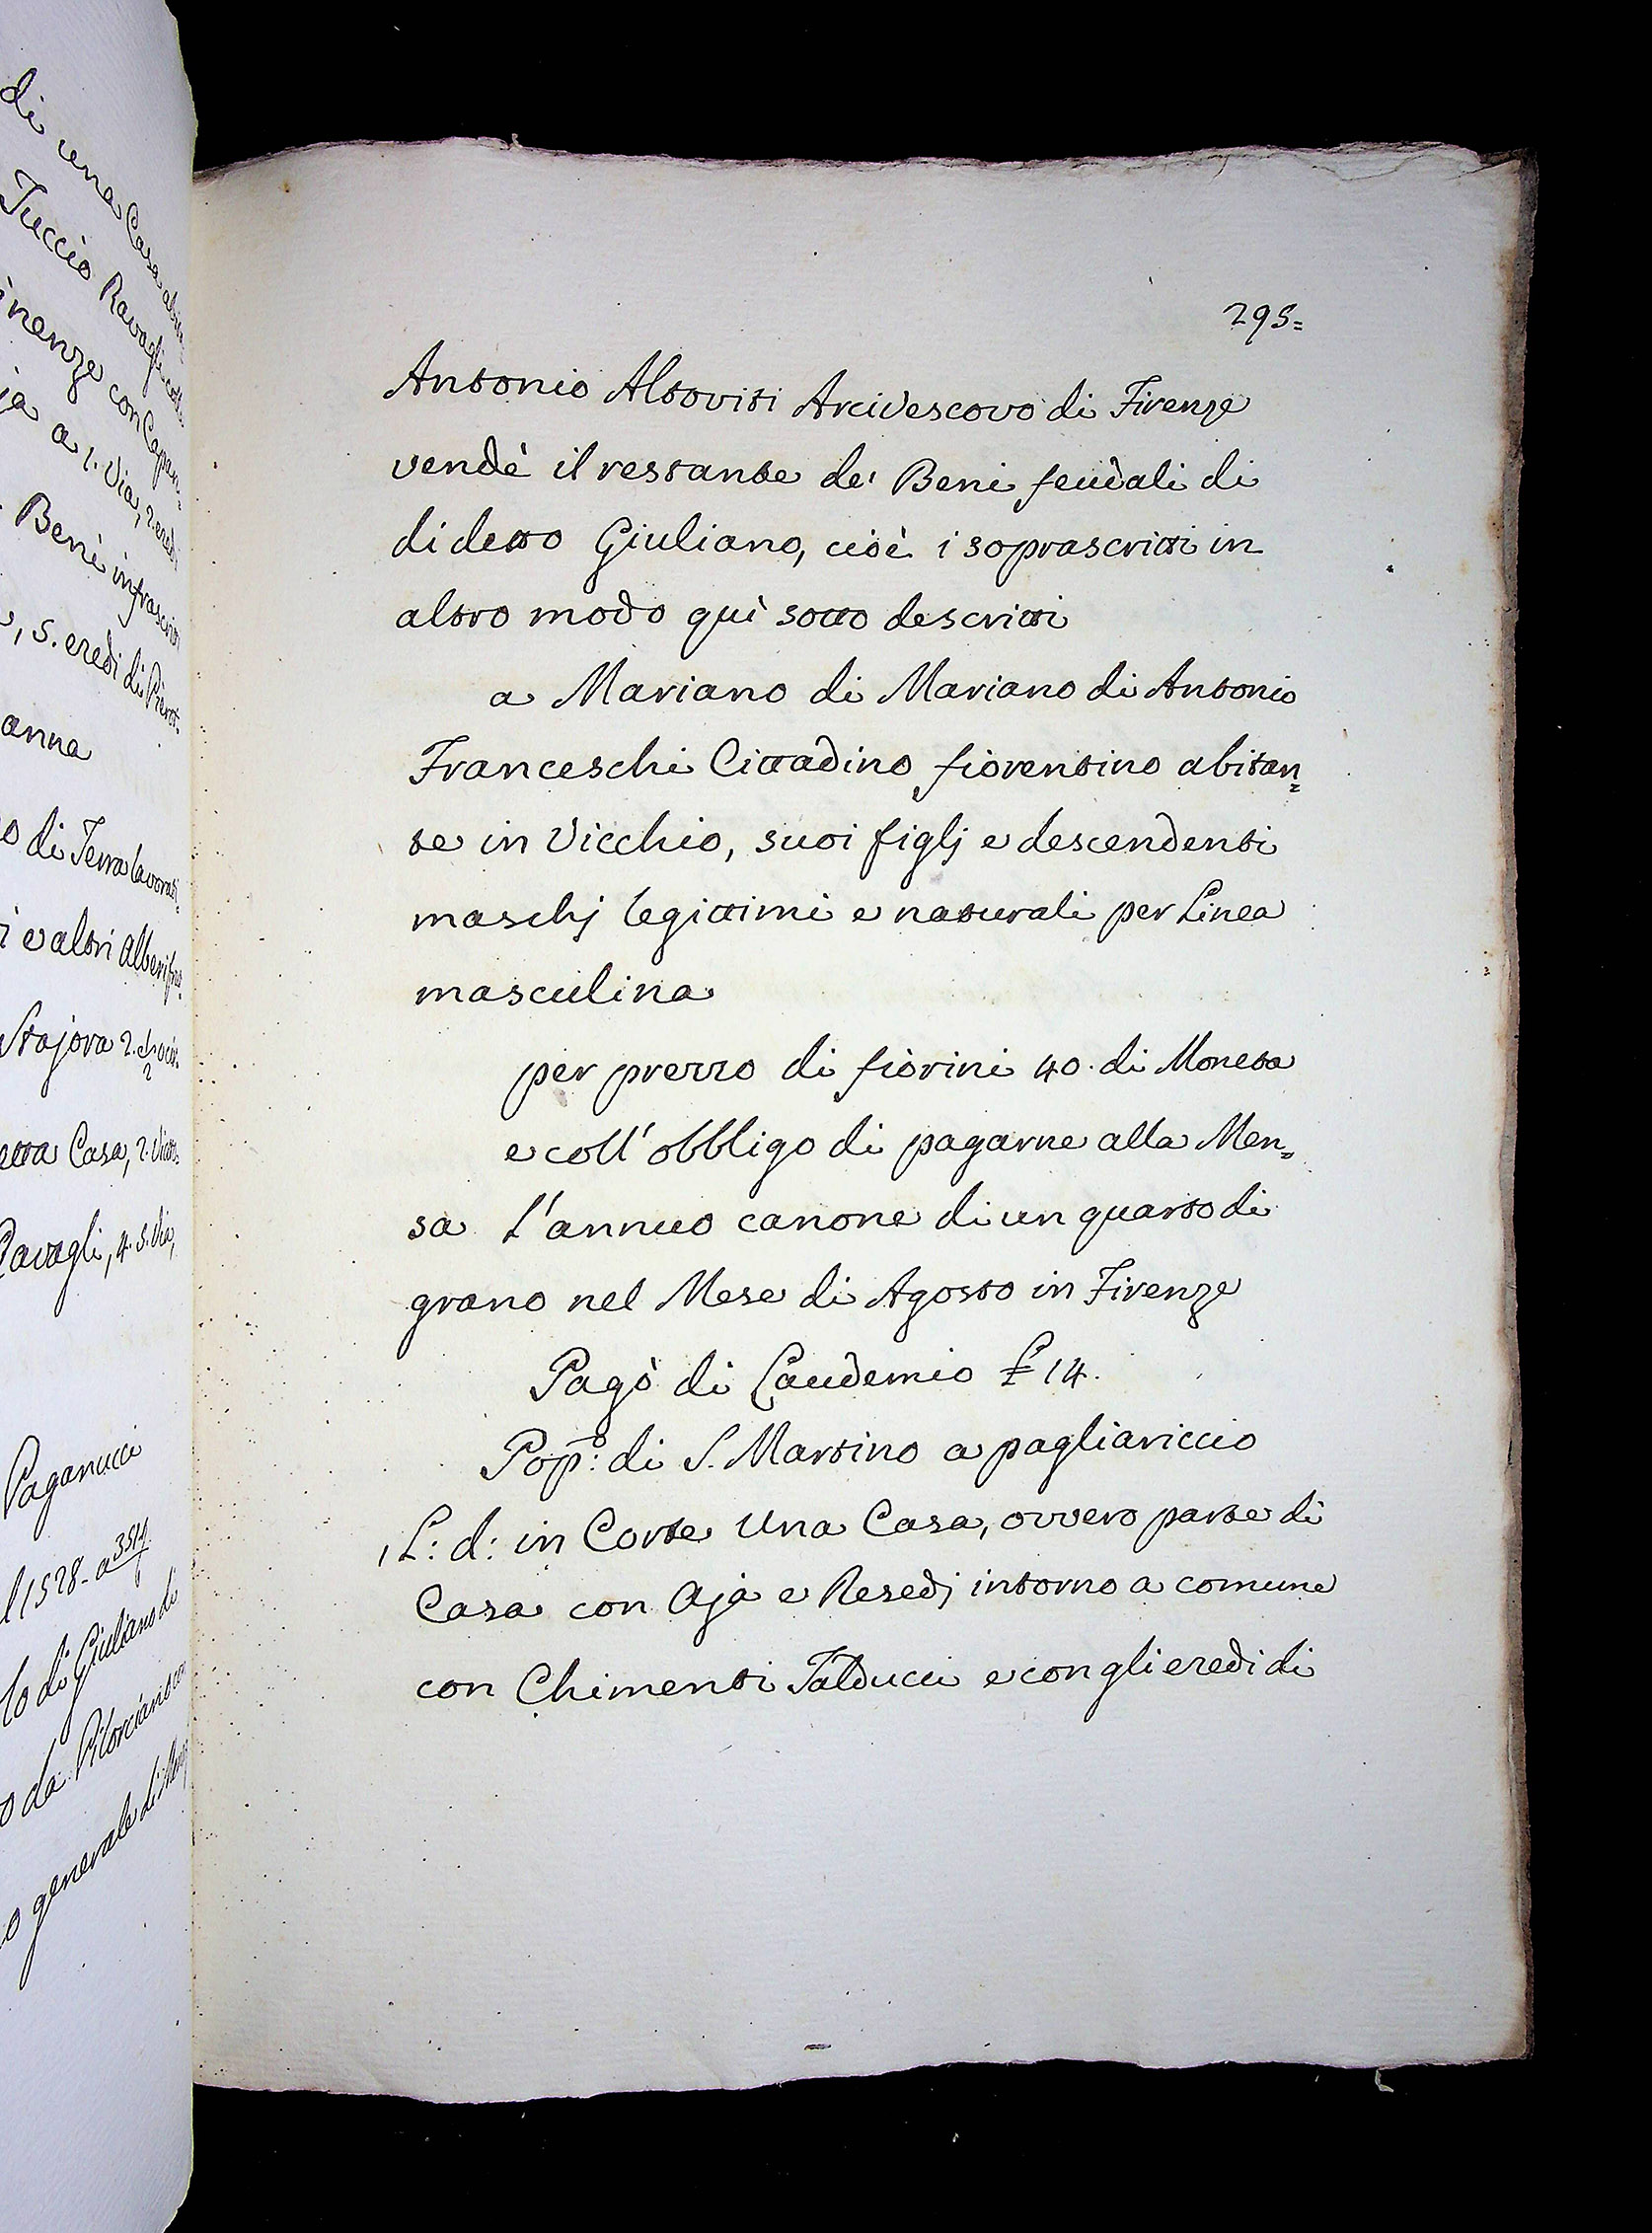 di una Casa
Tuccio Ravagli
inenze con Capan=
ja a 1. Via, 2. eredi
Beni infrascri
, 5. eredi di Pierot.
anna
o di Terra lavorat.
i e altri Alberi
Stajora 2.
etta Casa, 2.
Ravagli, 4. 5. Via,
Paganucci
l 1528. a 351
lo di Giuliano di
o da Pilorciano
o generale di
295=
Antonio Altoviti Arcivescovo di Firenze
vendè il restante de' Beni feudali di
di detto Giuliano, cioè i soprascritti in
altro modo quì sotto descritti
a Mariano di Mariano di Antonio
Franceschi Cittadino fiorentino abitan=
te in Vicchio, suoi figlj e descendenti
maschj legittimi e naturali per Linea
masculina
per prezzo di fiorini 40. di Moneta
e coll' obbligo di pagarne alla Men=
sa l'annuo canone di un quarto di
grano nel Mese di Agosto in Firenze
Pagò di Laudemio £ 14.
Pop:º di S. Martino a pagliariccio
, L: d: in Corte Una Casa, ovvero parte di
Casa con Aja e Resedj intorno a comune
con Chimenti Talducci e con gli eredi di